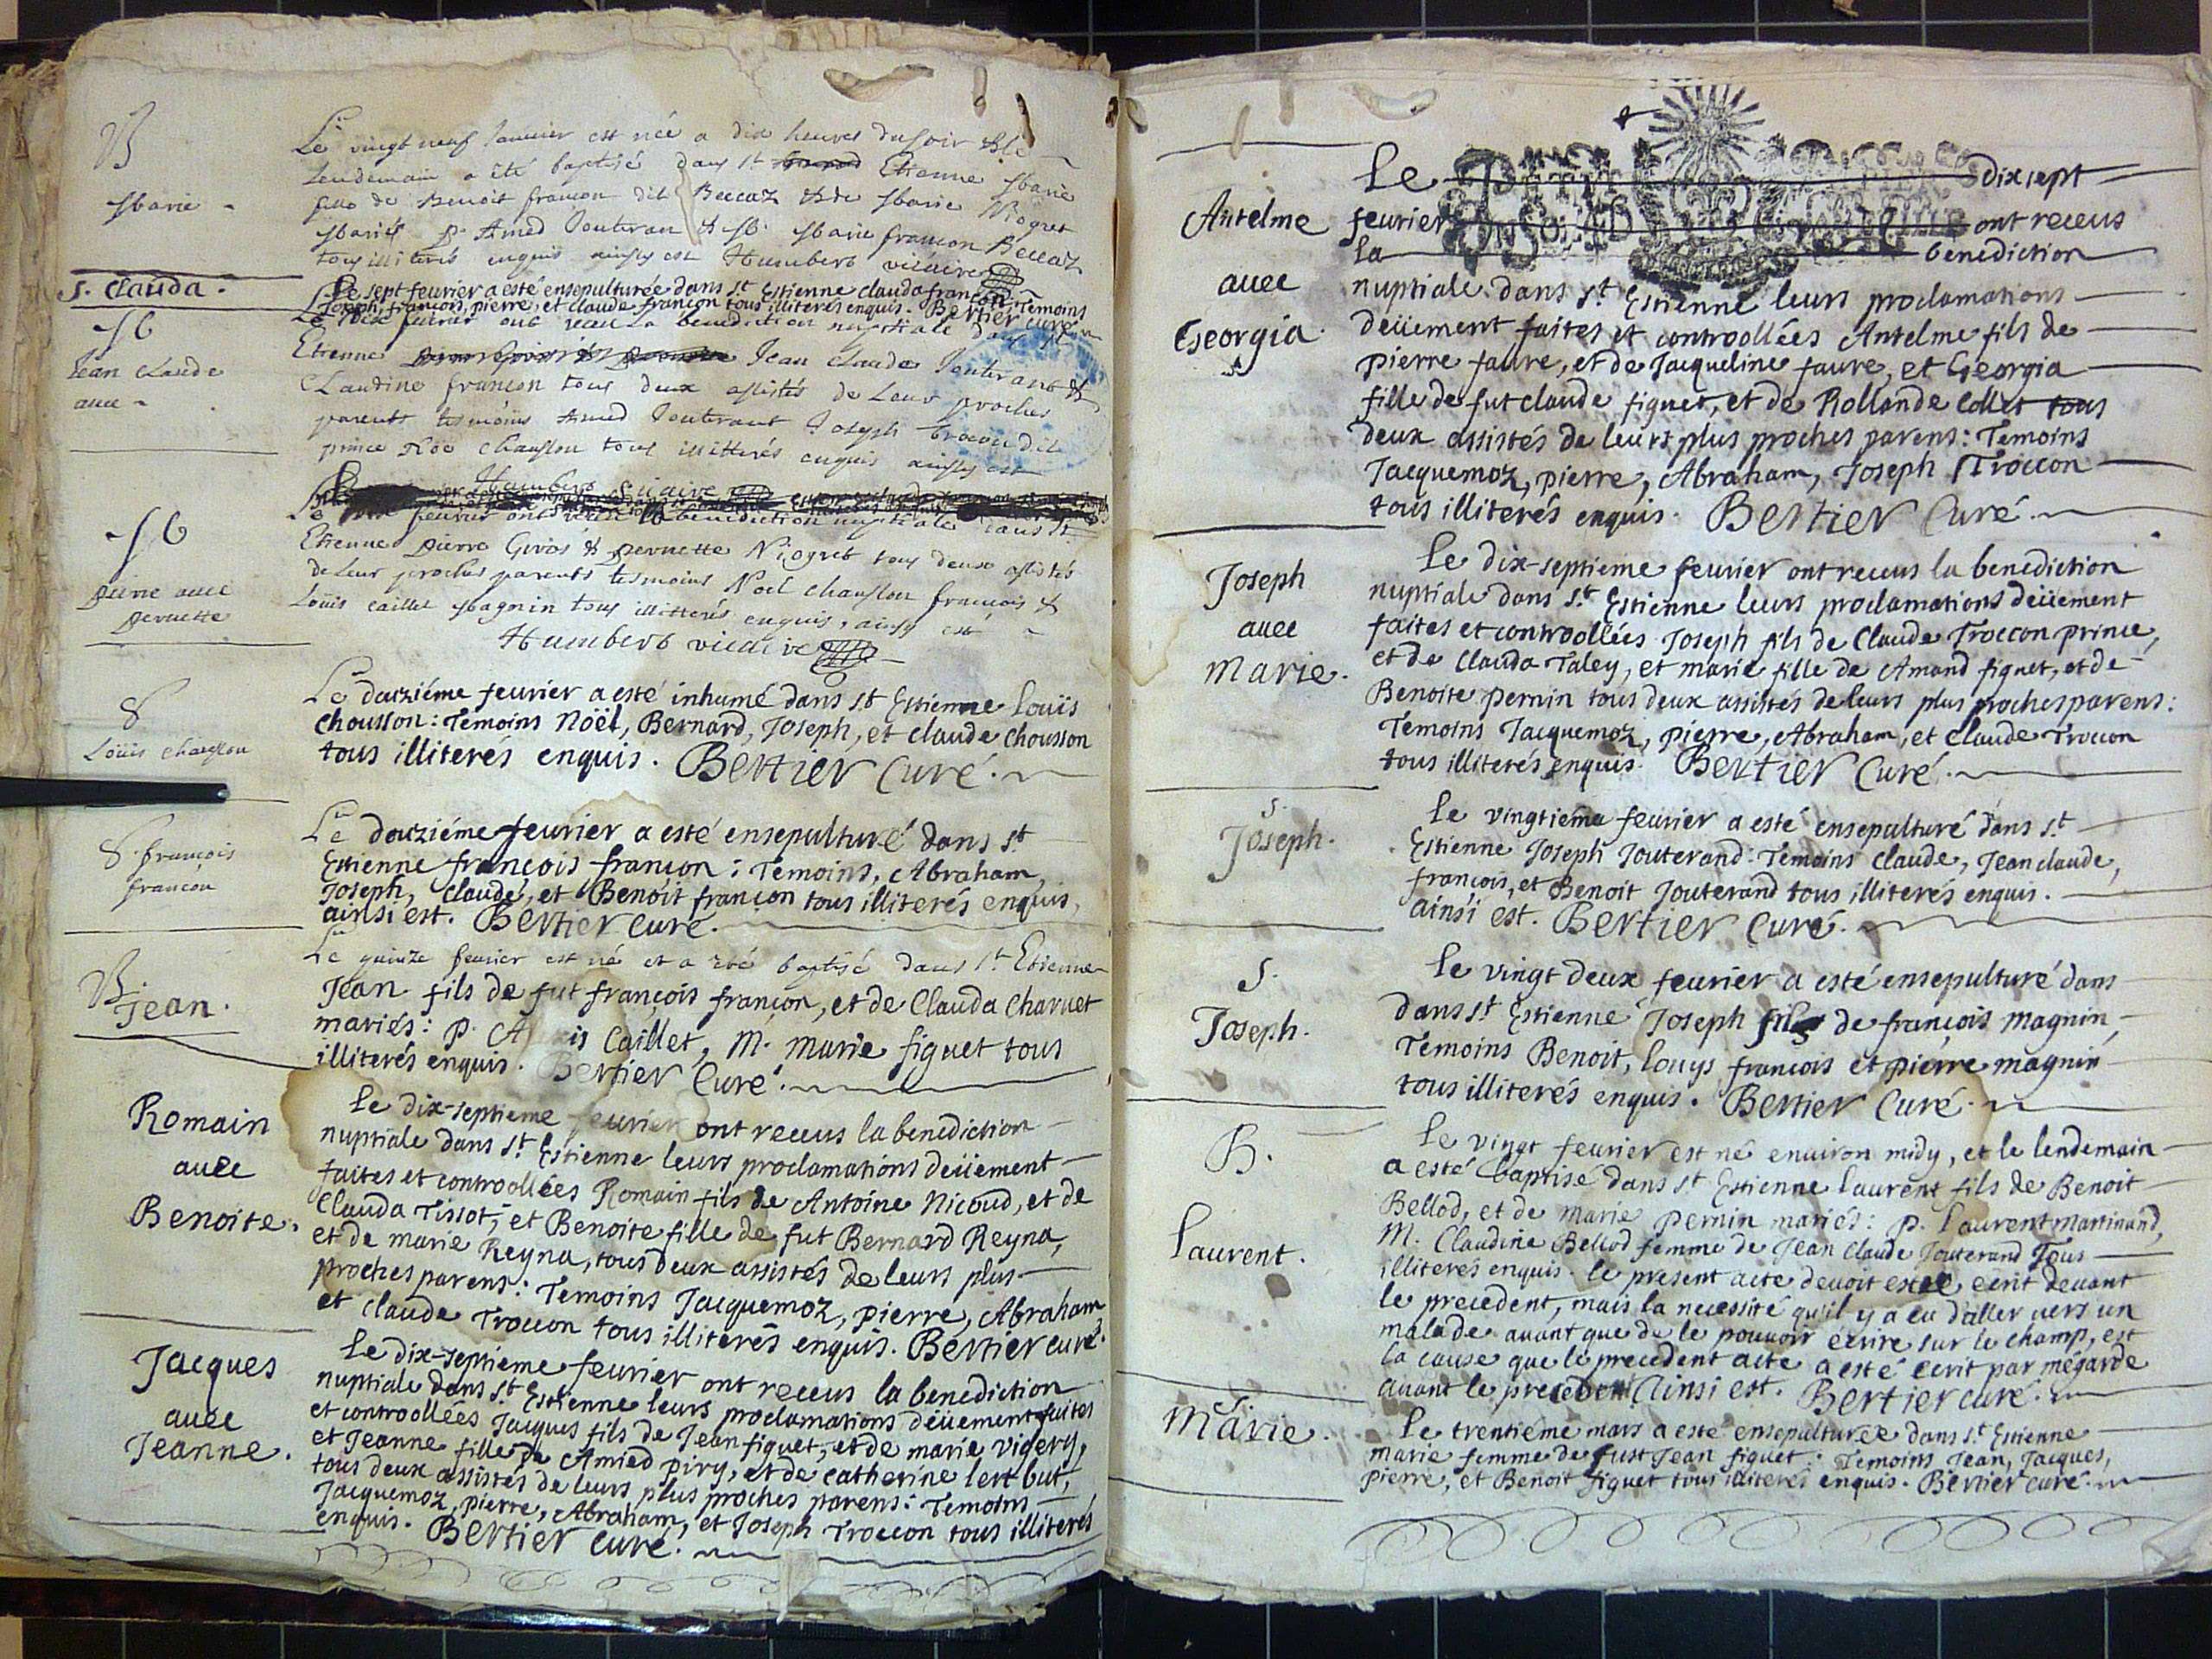 B
Marie
Le vingt neuf Januier est née a dix heures du soir & le
lendemain a été baptisé dans St Etienne Marie
fille de Benoit françon dit Beccaz & de Marie Niogret
Mariés P. Amed Jouteran & M. Marie françon Beccaz
tous illiterés enquis ainsy est Humbert vicaire
S. Clauda.
Le sept feurier a esté ensepulturée dans St Estienne clauda françon Temoins
Joseph, françois, pierre, et claude françon tous illiterés enquis. Bertier curé
M
Jean Claude
auec
Le dix feurier ont receu la benediction nuptiale dans St
Etienne Jean Claude Jouterant &
Claudine françon tous deux assistés de Leur proches
parents tesmoins Amed Jouterant Joseph trocon dit
prince Noe Chausson tous illitterés enquis ainsy est
Humbert vicaire
M
pierre auec
pernette
Le feurier ont receu la benediction nuptiale dans St
Etienne pierre Giros & pernette Niogret tous deux assistés
de Leur proches parents tesmoins Noel Chausson francois &
Loüis caillet Magnin tous illitterés enquis, ainsy est
Humbert vicaire
S
Loüis Chausson
Le douziéme feurier a esté inhumé dans St Estienne Loüis
Chousson: Temoins Noël, Bernard, Joseph, et claude Chousson
tous illiterés enquis. Bertier Curé.
S. francois
françon
Le douziéme feurier a esté ensepulturé dans St
Estienne françois françon: Temoins, Abraham,
Joseph, Claude, et Benoit françon tous illiterés enquis,
ainsi est. Bertier curé.
B. Jean.
Le quinze feurier est né et a été baptisé dans St Etienne
Jean fils de fut françois françon, et de Clauda Charuet
mariés: P. Caillet, M. Marie figuet tous
illiterés enquis. Bertier Curé.
Romain
auec
Benoite.
Le dix-septieme feurier ont receus la benediction
nuptiale dans St Estienne leurs proclamations deüement
faites et controollées Romain fils de Antoine Nicoud, et de
Clauda Tissot, et Benoite fille de fut Bernard Reyna,
et de marie Reyna, tous deux assistés de leurs plus
proches parens: Temoins Jacquemoz, pierre, Abraham
et claude Troccon tous illiterés enquis. Bertier curé.
Jacques
auec
Jeanne.
Le dix-septieme feurier ont receus la benediction
nuptiale dans St Estienne leurs proclamations deüement faites
et controollées Jacques fils de Jean figuet, et de marie vigery,
et Jeanne fille de Amied piry, et de catherine lert but,
tous deux assistés de leurs plus proches parens: Temoins
Jacquemoz, pierre, Abraham, et Joseph Troccon tous illiterés
enquis. Bertier Curé.
Antelme
auec
Georgia.
Le dix sept
feurier ont receus
la benediction
nuptiale dans St Estienne leurs proclamations
deüement faites et controollées Antelme fils de
pierre faure, et de Jacqueline faure, et Georgia
fille de fut claude figuet, et de Rollande Collet tous
deux assistés de leurs plus proches parens: Temoins
Jacquemoz, pierre, Abraham, Joseph Troccon
tous illiterés enquis. Bertier Curé.
Joseph
auec
Marie.
Le dix-septieme feurier ont receus la benediction
nuptiale dans St Estienne leurs proclamations deüement
faites et controollées Joseph fils de Claude Troccon prince,
et de Clauda Taley, et marie fille de Amand figuet, et de
Benoite pernin tous deux assistés de leurs plus proches parens:
Temoins Jacquemoz, pierre, Abraham, et Claude Troccon
tous illiterés enquis. Bertier Curé.
S.
Joseph.
Le vingtieme feurier a esté ensepulturé dans St
Estienne Joseph Jouterand: Temoins Claude, Jean claude,
françois, et Benoit Jouterand tous illiterés enquis.
ainsi est. Bertier Curé.
S.
Joseph.
Le vingt deux feurier a esté ensepulturé dans
dans St Estienne Joseph fils de françois magnin,
Temoins Benoit, louys françois et pierre magnin
tous illiterés enquis. Bertier Curé.
B.
Laurent.
Le vingt feurier est né enuiron midy, et le lendemain
a esté baptisé dans St Estienne laurent fils de Benoit
Bellod, et de marie pernin mariés: p. laurent martinand,
M. Claudine Bellod femme de Jean claude Jouterand Tous
illiterés enquis. le present acte deuoit estre ecrit deuant
le precedent, mais la necessité qu'il y a eu d'aller vers un
malade auant que de le pouuoir ecrire sur le champ, est
la cause que le precedent acte a esté ecrit par mégarde
auant le precedent ainsi est. Bertier curé.
S.
Marie.
Le trentiéme mars a esté ensepulturée dans St Estienne
marie femme de fust Jean figuet: Temoins Jean, Jacques,
pierre, et Benoit figuet tous illiterés enquis. Bertier curé.